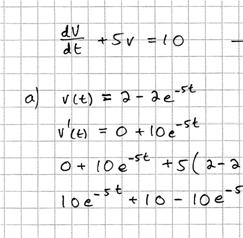 dV/dt + 5v = 10 —
a) v(t) = 2 - 2e^-5t
v'(t) = 0 + 10e^-5t
0 + 10e^-5t + 5(2 - 2
10e^-5t + 10 - 10e^-5